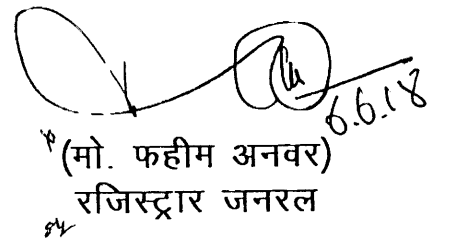 6.6.18
(मो. फहीम अनवर)
रजिस्ट्रार जनरल